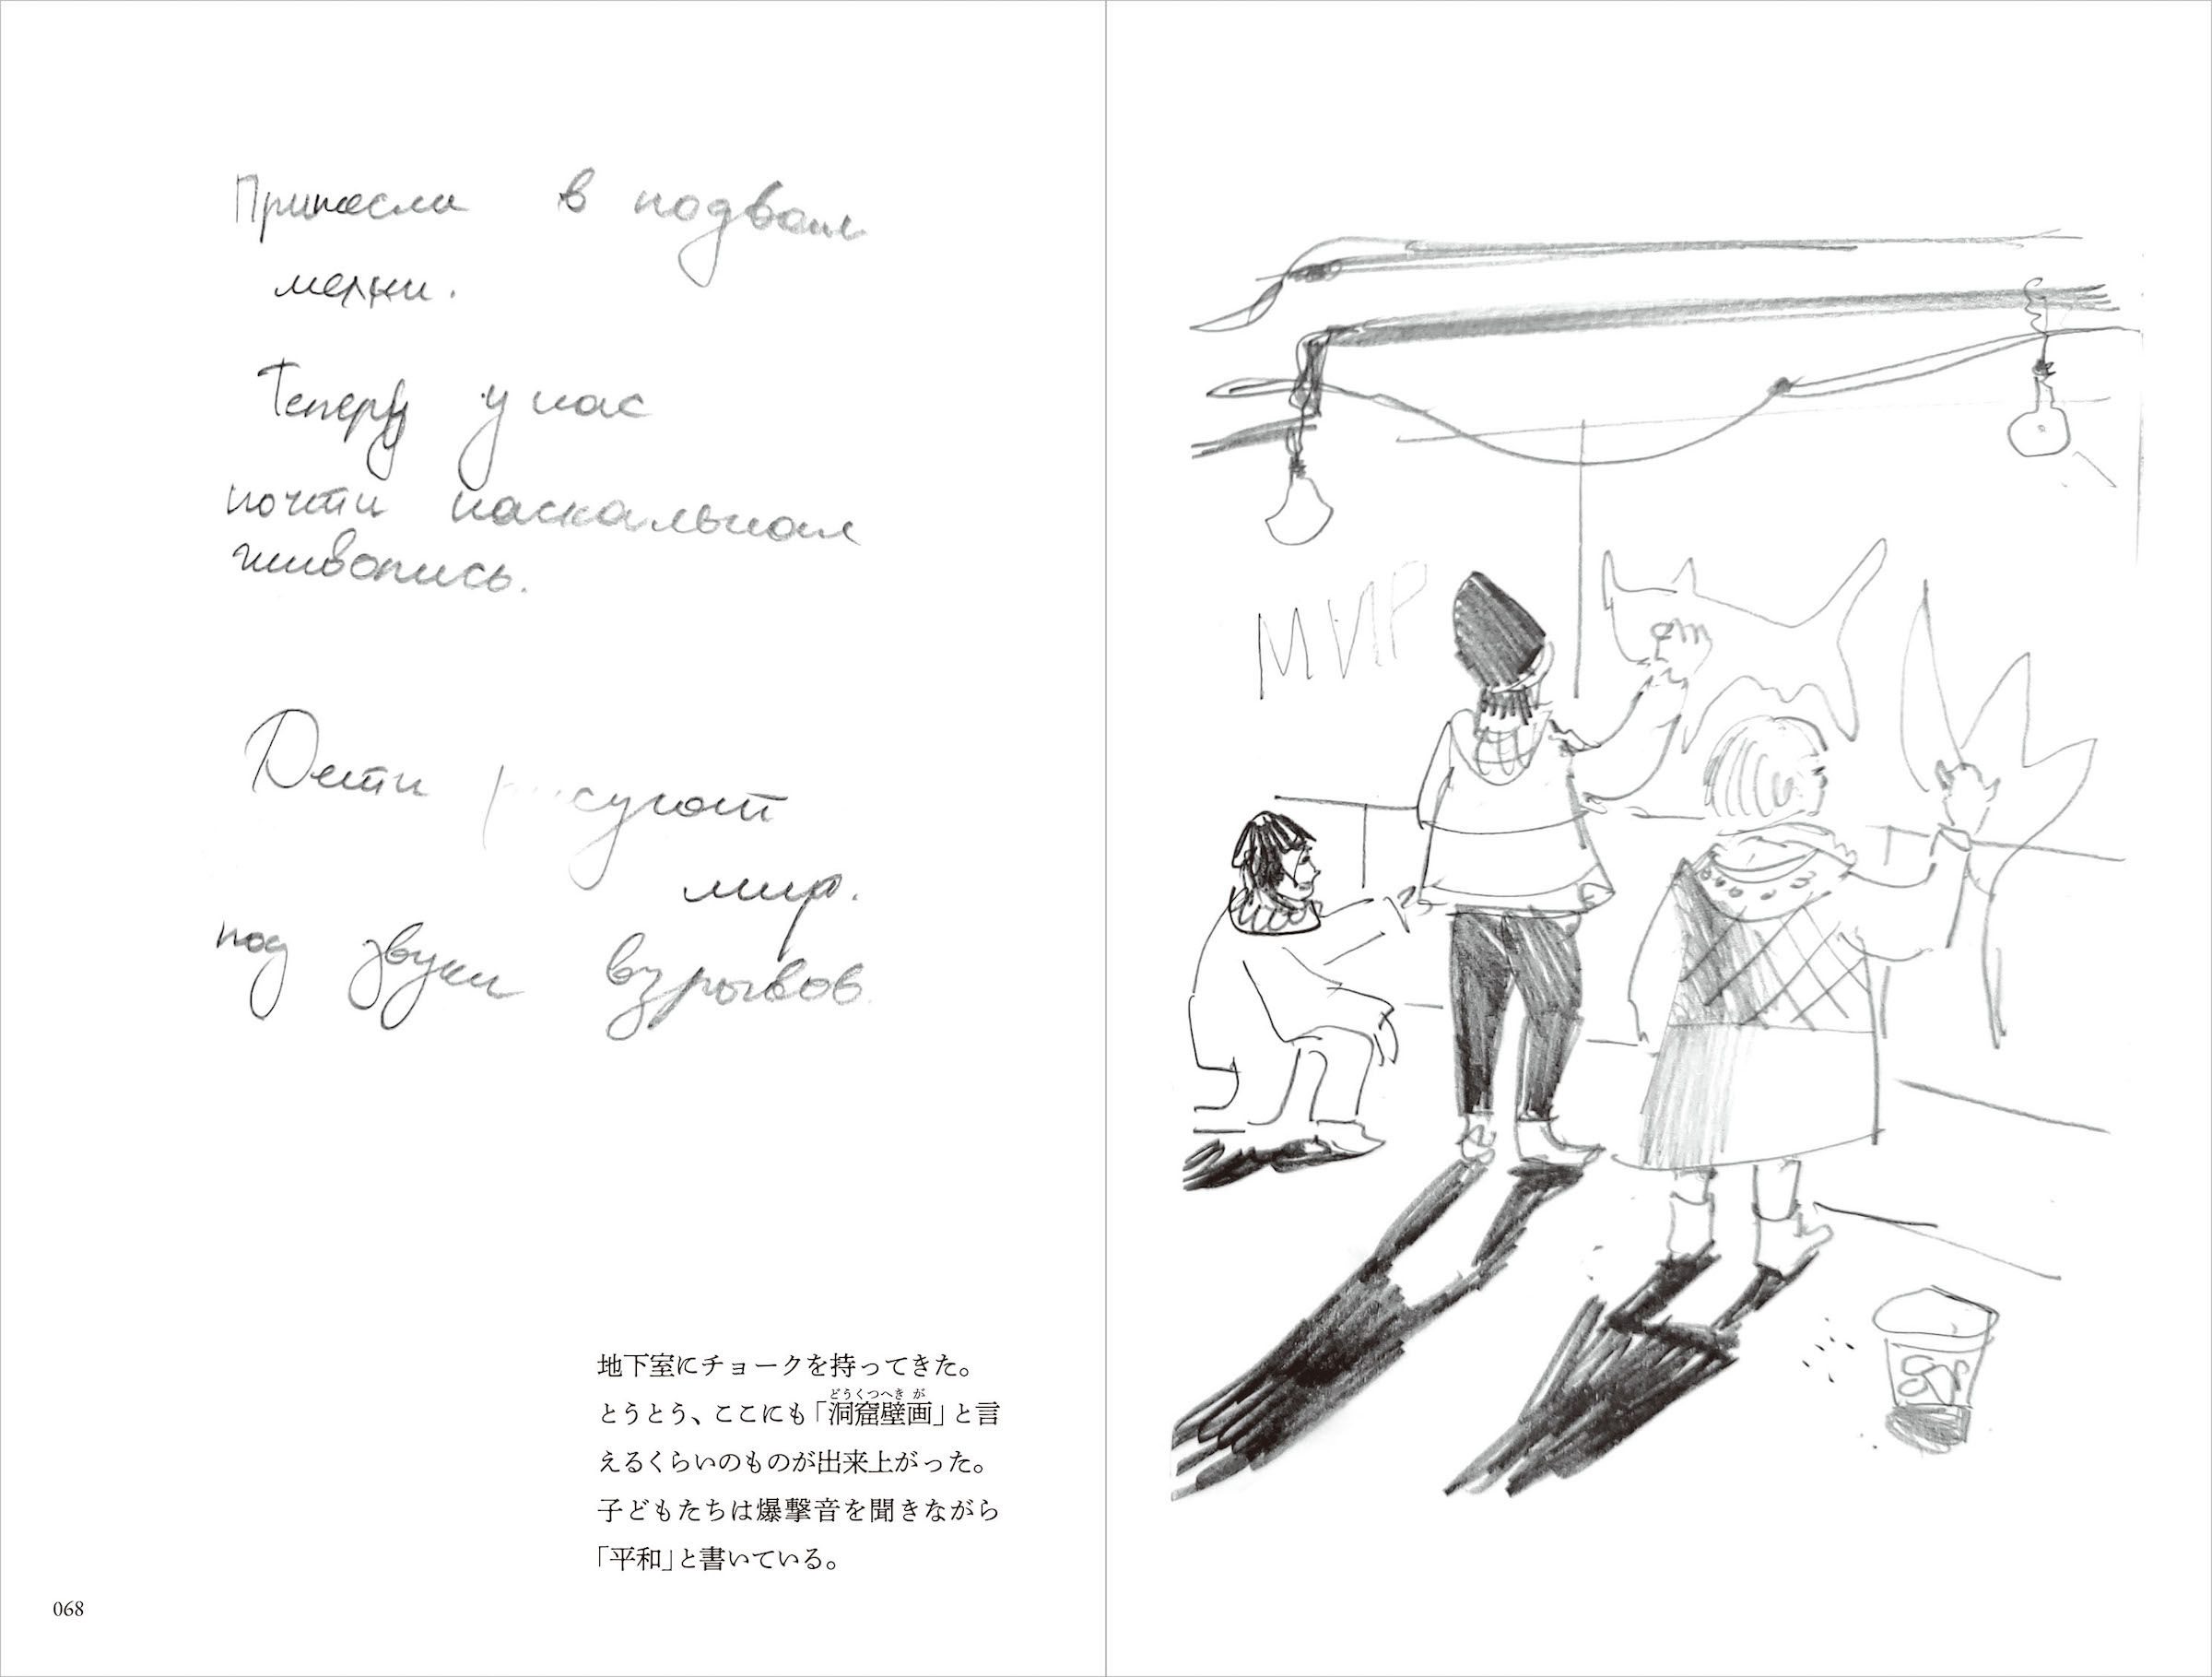 Принесли в подвал
мелки.
Теперь у нас
почти наскальная
живопись.
Дети рисуют
мир.
под звуки взрывов.
地下室にチョークを持ってきた。
どうくつへきが
とうとう、ここにも「洞窟壁画」と言
えるくらいのものが出来上がった。
子どもたちは爆撃音を聞きながら
「平和」と書いている。
068
МИР